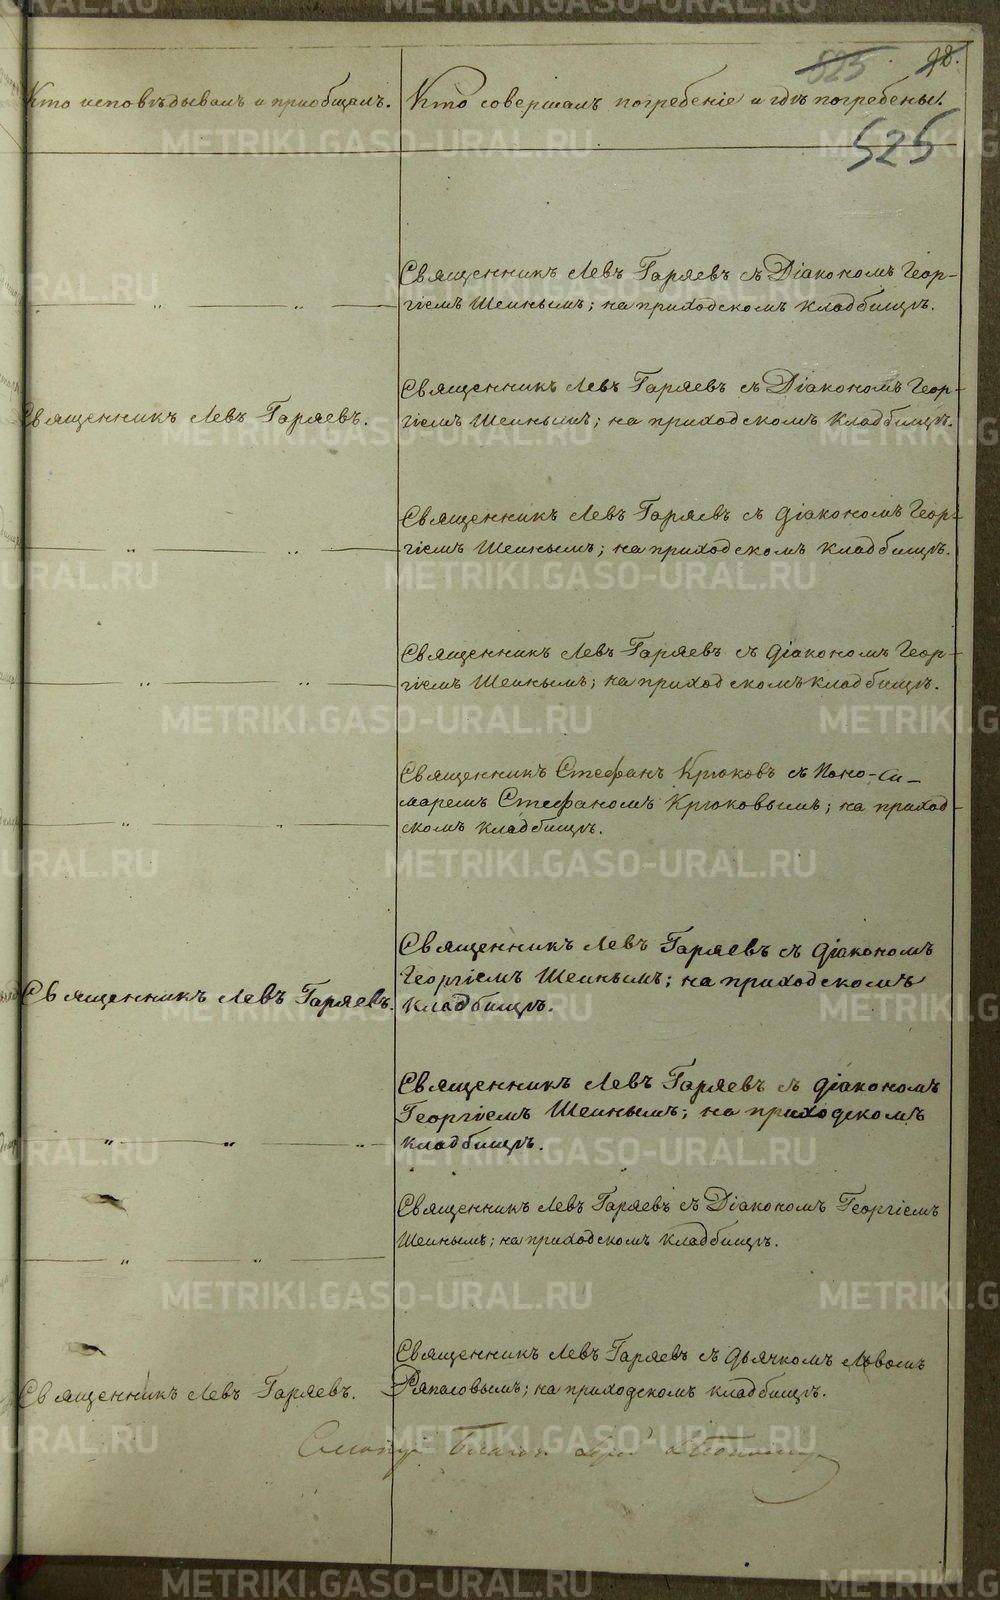 525 98.
Кто исповѣдывалъ и приобщалъ. Кто совершалъ погребеніе и гдѣ погребены.
525
Священникъ Левъ Гаряевъ съ Діакономъ Геор-
гіемъ Шеинымъ; на приходскомъ кладбищѣ.
Священникъ Левъ Гаряевъ.
Священникъ Левъ Гаряевъ съ Діакономъ Геор-
гіемъ Шеинымъ; на приходскомъ кладбищѣ.
Священникъ Левъ Гаряевъ съ діакономъ Геор-
гіемъ Шеинымъ; на приходскомъ кладбищѣ.
Священникъ Левъ Гаряевъ съ діакономъ Геор-
гіемъ Шеинымъ; на приходскомъ кладбищѣ.
Священникъ Стефанъ Крюковъ съ Поно-
маремъ Стефаномъ Крюковымъ; на приход-
скомъ кладбищѣ.
Священникъ Левъ Гаряевъ.
Священникъ Левъ Гаряевъ съ діакономъ
Георгіемъ Шеинымъ; на приходскомъ
кладбищѣ.
Священникъ Левъ Гаряевъ съ діакономъ
Георгіемъ Шеинымъ; на приходскомъ
кладбищѣ.
Священникъ Левъ Гаряевъ съ Діакономъ Георгіемъ
Шеинымъ; на приходскомъ кладбищѣ.
Священникъ Левъ Гаряевъ.
Священникъ Левъ Гаряевъ съ дьячкомъ Львомъ
Ряпасовымъ; на приходскомъ кладбищѣ.
METRIKI.GASO-URAL.RU